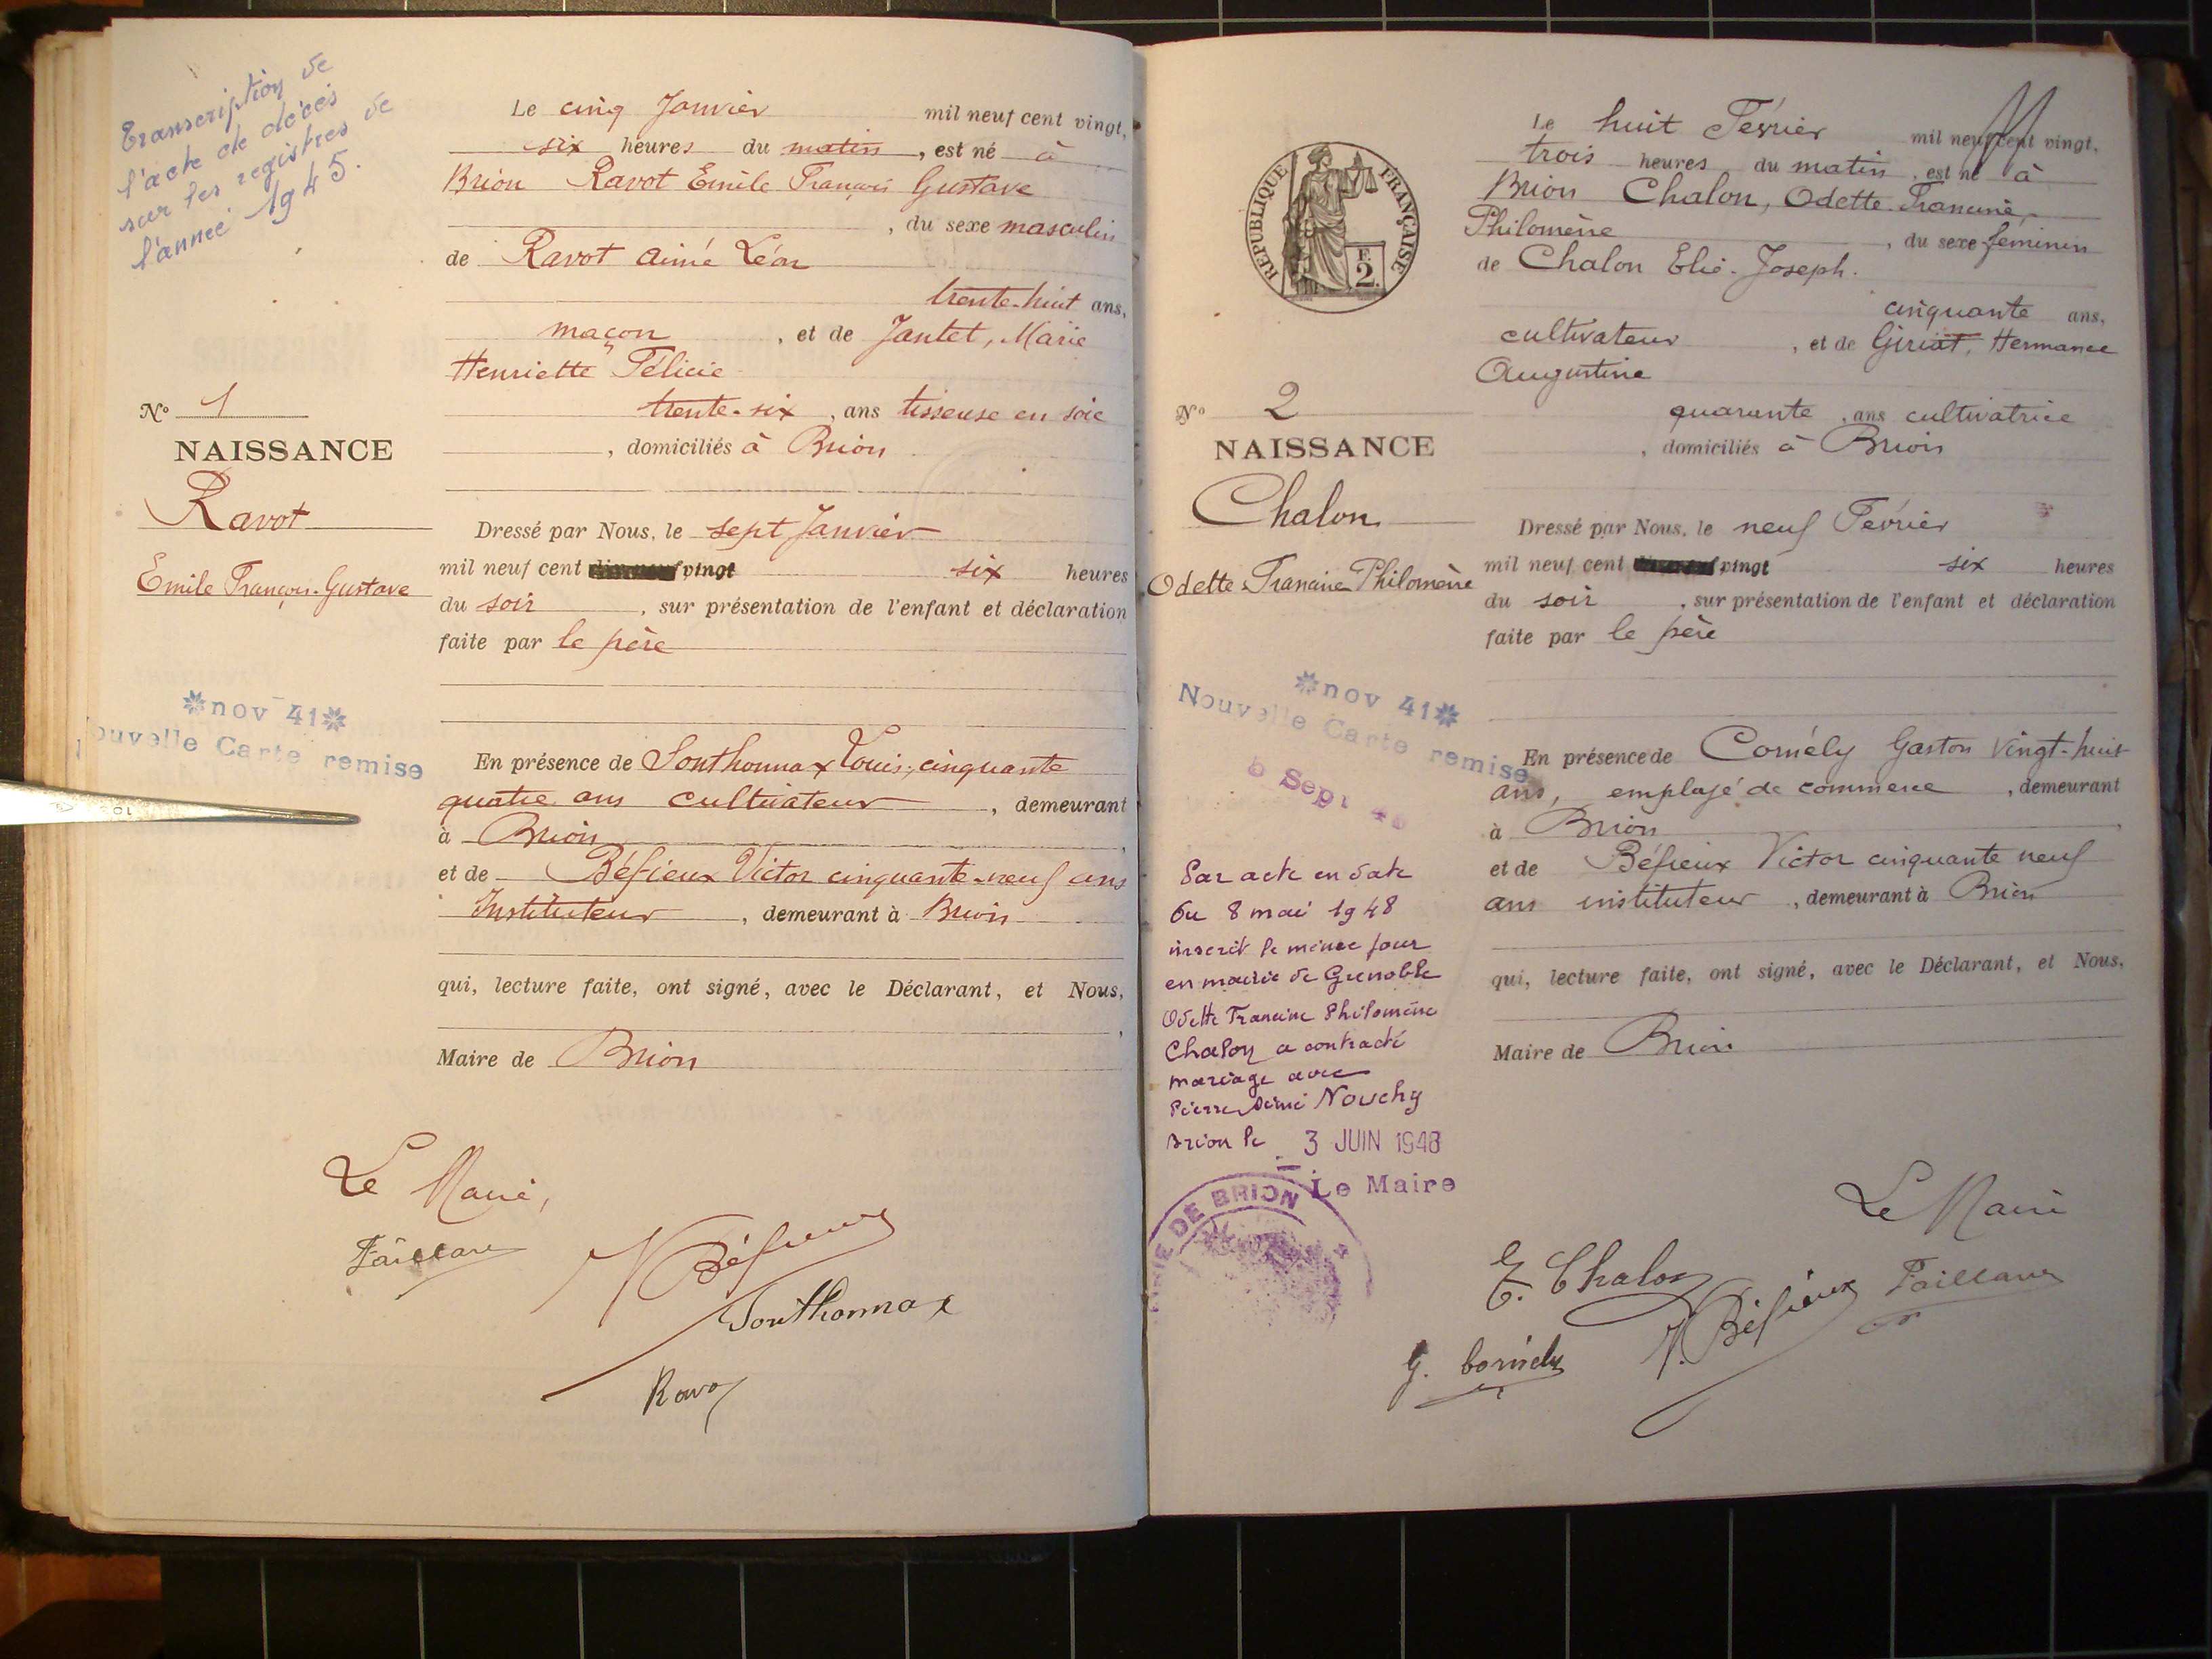 Transcription de
l'acte de décès
sur les registres de
l'année 1945.
Le cinq Janvier mil neuf cent vingt,
six heures du matin, est né à
Brion Ravot Emile François Gustave
, du sexe masculin
de Ravot Aimé Léon
trente-huit ans,
maçon, et de Jantet, Marie
Henriette Félicie
trente-six, ans tisseuse en soie
, domiciliés à Brion
No 1
NAISSANCE
Ravot
Emile François-Gustave
Dressé par Nous, le sept Janvier
mil neuf cent vingt six heures
du soir, sur présentation de l'enfant et déclaration
faite par le père
nov 41
Nouvelle Carte remise
En présence de Sonthonnax Louis, cinquante
quatre ans cultivateur, demeurant
à Brion,
et de Béfieux Victor cinquante-neuf ans
Instituteur, demeurant à Brion
qui, lecture faite, ont signé, avec le Déclarant, et Nous,
Maire de Brion
Le Maire,
Faillard
V Béfieux
Sonthonnax
Ravot
REPUBLIQUE FRANÇAISE
F.
2.
Le huit Février mil neuf cent vingt,
trois heures du matin, est né à
Brion Chalon, Odette Francine,
Philomène, du sexe féminin
de Chalon Elie-Joseph.
cinquante ans,
cultivateur, et de Giriat, Hermance
Augustine
quarante, ans cultivatrice
, domiciliés à Brion
No 2
NAISSANCE
Chalon
Odette Francine Philomène
Dressé par Nous, le neuf Février
mil neuf cent vingt six heures
du soir, sur présentation de l'enfant et déclaration
faite par le père
nov 41
Nouvelle Carte remise
Sept
En présence de Cornély Gaston vingt-huit
ans, employé de commerce, demeurant
à Brion,
et de Béfieux Victor cinquante neuf
ans instituteur, demeurant à Brion
qui, lecture faite, ont signé, avec le Déclarant, et Nous,
Maire de Brion
Par acte en date
du 8 mai 1948
inscrit le même jour
en mairie de Grenoble
Odette Francine Philomène
Chalon a contracté
mariage avec
Pierre Nouchy
Brion le 3 JUIN 1948
Le Maire
MAIRIE DE BRION
Le Maire
E. Chalon
V. Béfieux
Faillard
G. Cornély